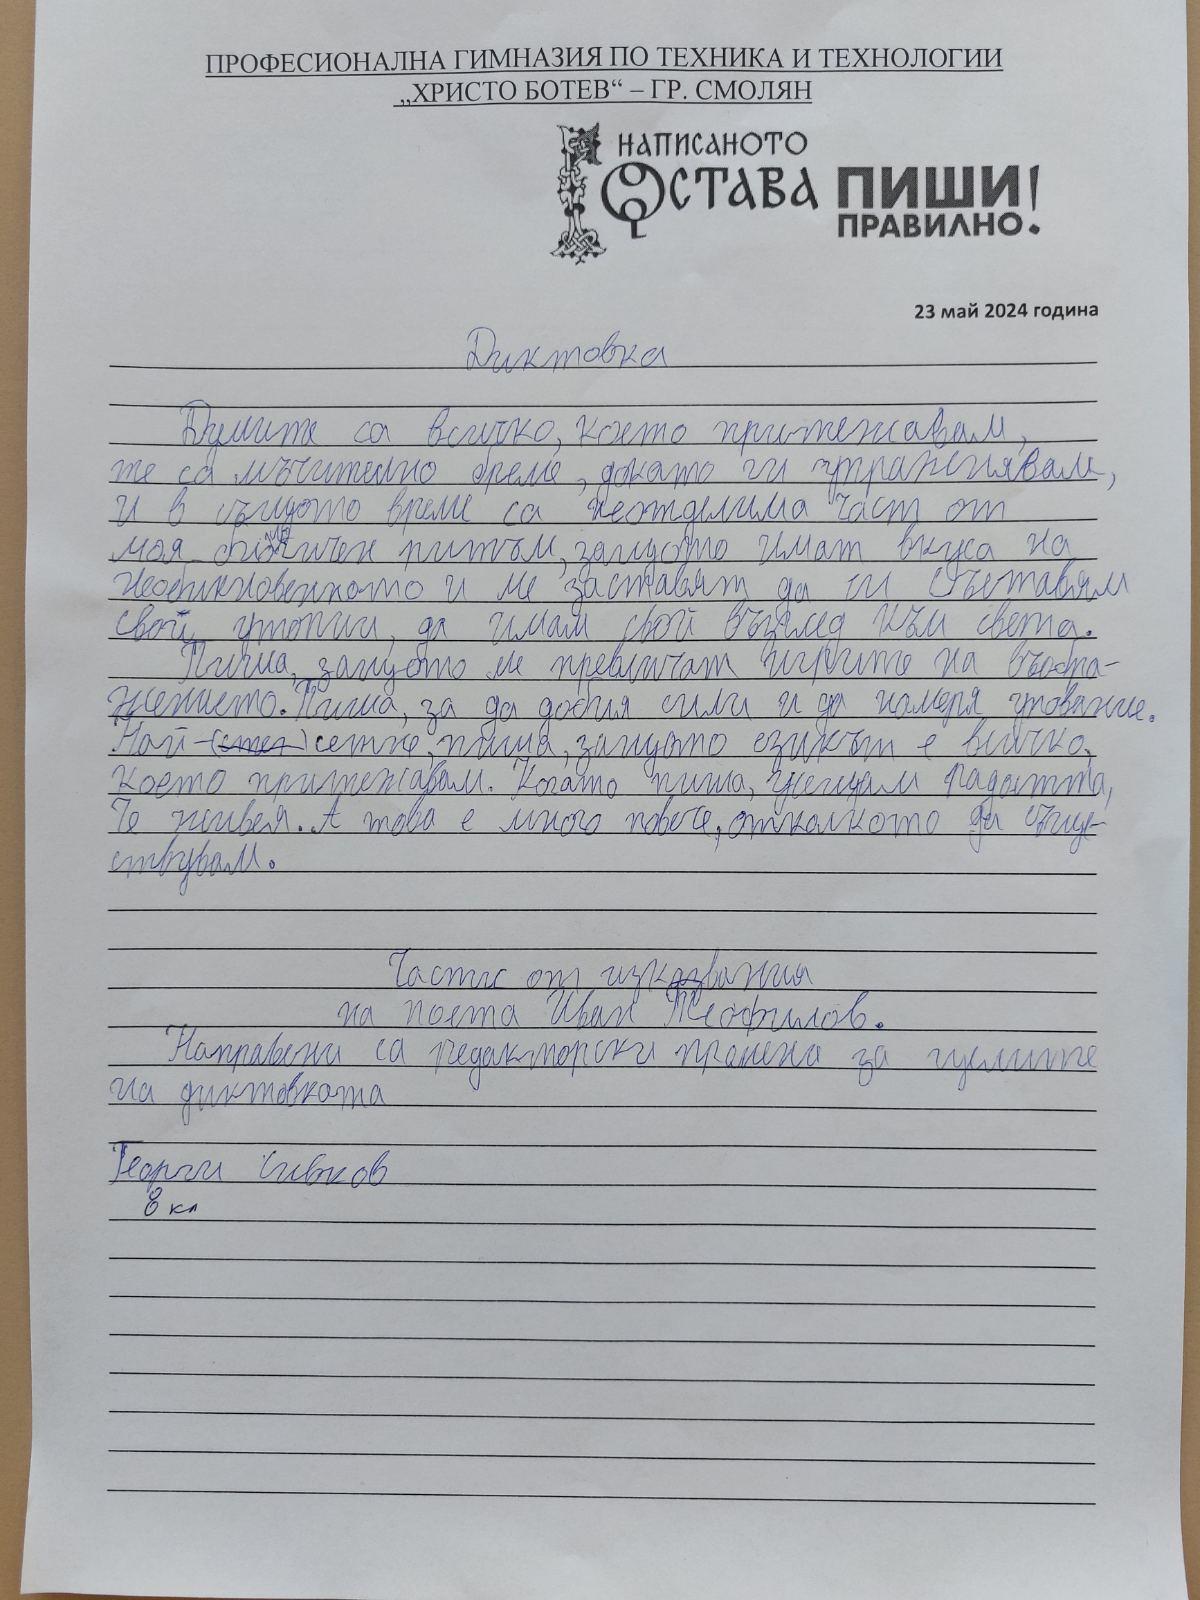 ПРОФЕСИОНАЛНА ГИМНАЗИЯ ПО ТЕХНИКА И ТЕХНОЛОГИИ
„ХРИСТО БОТЕВ“ – ГР. СМОЛЯН
НАПИСАНОТО
ОСТАВА ПИШИ
ПРАВИЛНО!
23 май 2024 година
Диктовка
Думите са всичко, което притежавам,
те са мъчително бреме, докато ги упражнявам,
и в същото време са неотделима част от
моя ритъм, защото имат вкуса на
необикновенното и ме заставят да си съставям
свой утопии, да имам свой възглед към света.
Пиша, защото ме превличат игрите на въобра-
жението. Пиша, за да добия сили и да намеря упование.
Най-(стет) сетне, пиша, защото езикът е всичко,
което притежавам. Когато пиша, усещам радостта,
че живея. А това е много повече, отколкото да съще-
ствувам.
Части от изказвания
на поета Иван Теофилов.
Направени са редакторски промени за целите
на диктовката
Георги Сивков
8 кл